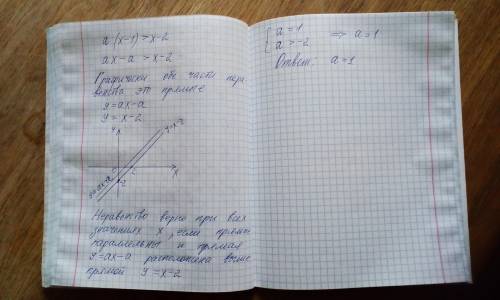 a·(x-1)>x-2
ax-a > x-2
Графически обе части нера
венства эт прямые
y=ax-a
y = x-2
y
y=x-2
x
y=ax-a
Неравенство верно при всех
значениях x, если прямые
параллельны и прямая
y=ax-a расположена выше
прямой y=x-2
{ a=1
a>-2 ⟹ a=1
Ответ: a=1